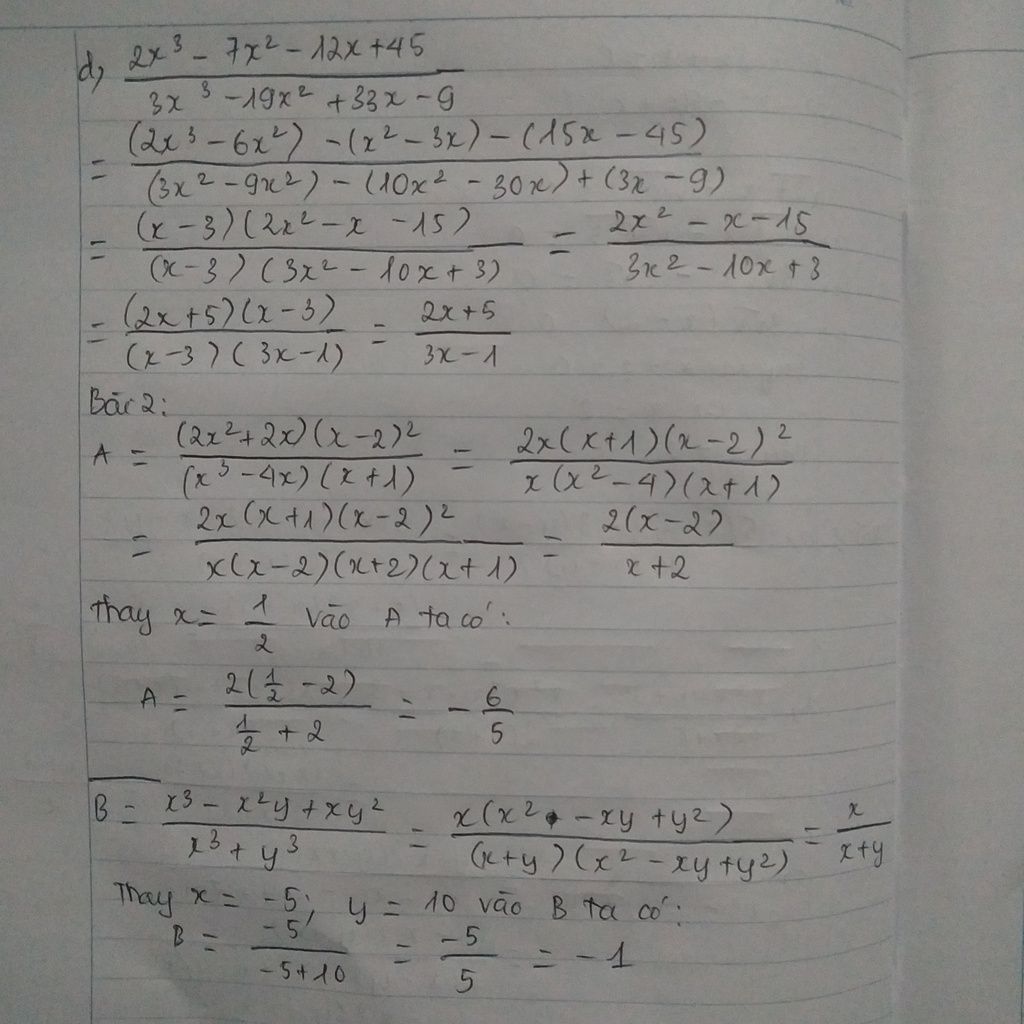 d, (2x³ - 7x² - 12x + 45)/(3x³ - 19x² + 33x - 9)
= ((2x³ - 6x²) - (x² - 3x) - (15x - 45))/((3x² - 9x²) - (10x² - 30x) + (3x - 9))
= ((x - 3)(2x² - x - 15))/((x - 3)(3x² - 10x + 3)) = (2x² - x - 15)/(3x² - 10x + 3)
= ((2x + 5)(x - 3))/((x - 3)(3x - 1)) = (2x + 5)/(3x - 1)
Bài 2:
A = ((2x² + 2x)(x - 2)²)/((x³ - 4x)(x + 1)) = (2x(x + 1)(x - 2)²)/(x(x² - 4)(x + 1))
= (2x(x + 1)(x - 2)²)/(x(x - 2)(x + 2)(x + 1)) = (2(x - 2))/(x + 2)
Thay x = 1/2 vào A ta có:
A = (2(1/2 - 2))/(1/2 + 2) = - 6/5
B = (x³ - x²y + xy²)/(x³ + y³) = (x(x² - xy + y²))/((x + y)(x² - xy + y²)) = x/(x + y)
Thay x = -5; y = 10 vào B ta có:
B = (-5)/(-5 + 10) = (-5)/5 = -1